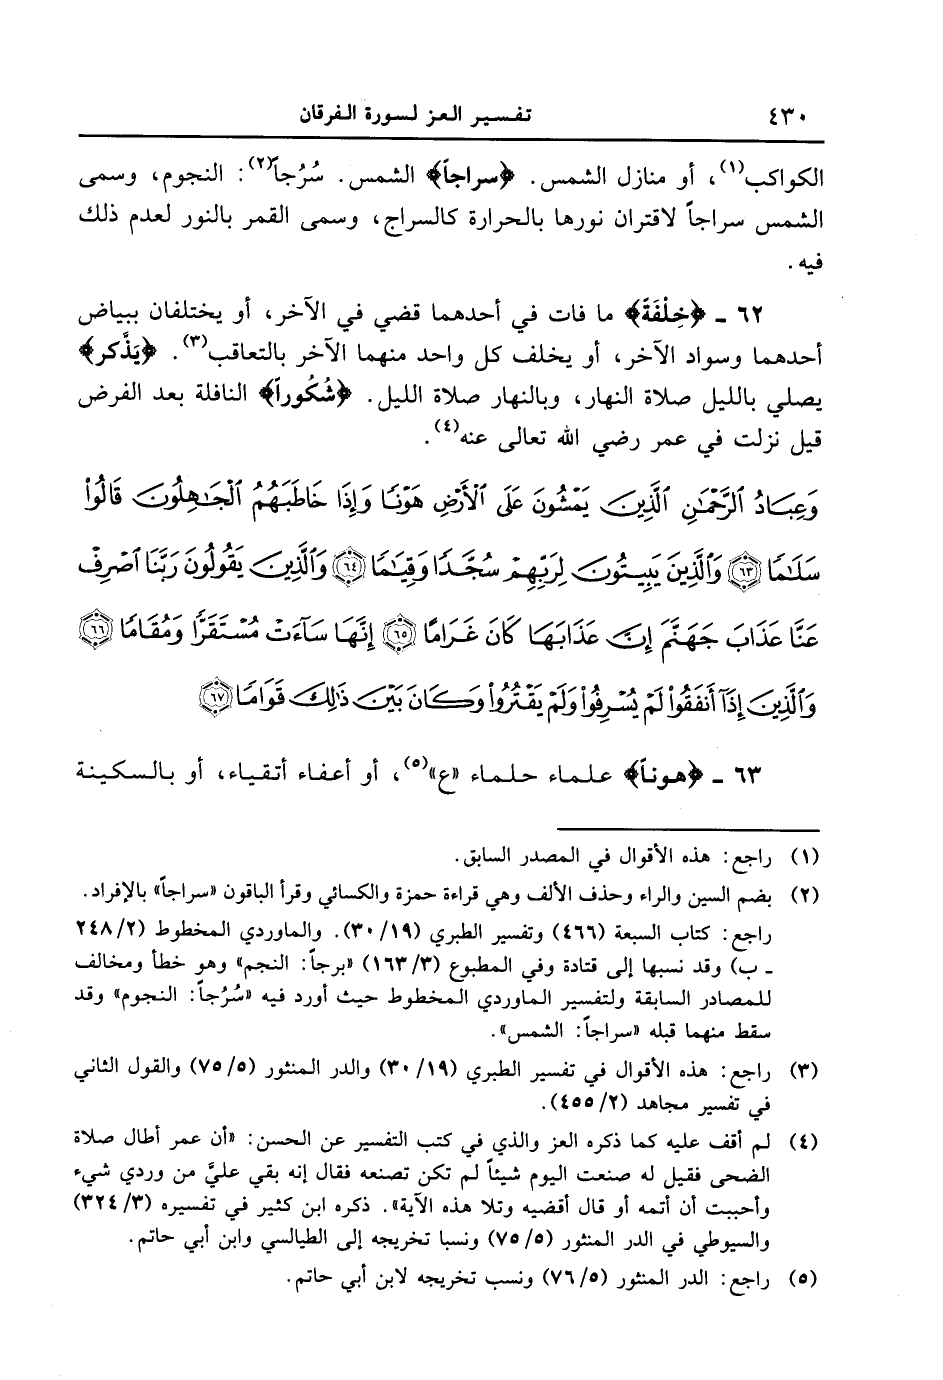 ٤٣٠ تفسير العز لسورة الفرقان
الكواكب(١)، أو منازل الشمس. ﴿سراجاً﴾ الشمس. سُرُجاً(٢): النجوم، وسمى
الشمس سراجاً لاقتران نورها بالحرارة كالسراج، وسمى القمر بالنور لعدم ذلك
فيه.
٦٢ ـ ﴿خِلْفَةً﴾ ما فات في أحدهما قضي في الآخر، أو يختلفان ببياض
أحدهما وسواد الآخر، أو يخلف كل واحد منهما الآخر بالتعاقب(٣). ﴿يَذَّكر﴾
يصلي بالليل صلاة النهار، وبالنهار صلاة الليل. ﴿شُكُوراً﴾ النافلة بعد الفرض
قيل نزلت في عمر رضي الله تعالى عنه(٤).
وَعِبَادُ ٱلرَّحْمَٰنِ ٱلَّذِينَ يَمْشُونَ عَلَى ٱلْأَرْضِ هَوْنًا وَإِذَا خَاطَبَهُمُ ٱلْجَٰهِلُونَ قَالُوا۟
سَلَٰمًا ٦٣ وَٱلَّذِينَ يَبِيتُونَ لِرَبِّهِمْ سُجَّدًا وَقِيَٰمًا ٦٤ وَٱلَّذِينَ يَقُولُونَ رَبَّنَا ٱصْرِفْ
عَنَّا عَذَابَ جَهَنَّمَ إِنَّ عَذَابَهَا كَانَ غَرَامًا ٦٥ إِنَّهَا سَآءَتْ مُسْتَقَرًّا وَمُقَامًا ٦٦
وَٱلَّذِينَ إِذَآ أَنفَقُوا۟ لَمْ يُسْرِفُوا۟ وَلَمْ يَقْتُرُوا۟ وَكَانَ بَيْنَ ذَٰلِكَ قَوَامًا ٦٧
٦٣ ـ ﴿هوناً﴾ علماء حلماء «ع»(٥)، أو أعفاء أتقياء، أو بالسكينة
(١) راجع: هذه الأقوال في المصدر السابق.
(٢) بضم السين والراء وحذف الألف وهي قراءة حمزة والكسائي وقرأ الباقون «سراجاً» بالإفراد.
راجع: كتاب السبعة (٤٦٦) وتفسير الطبري (٣٠/١٩). والماوردي المخطوط (٢٤٨/٢
ـ ب) وقد نسبها إلى قتادة وفي المطبوع (١٦٣/٣) «برجاً: النجم» وهو خطأ ومخالف
للمصادر السابقة ولتفسير الماوردي المخطوط حيث أورد فيه «سُرُجاً: النجوم» وقد
سقط منهما قبله «سراجاً: الشمس».
(٣) راجع: هذه الأقوال في تفسير الطبري (٣٠/١٩) والدر المنثور (٧٥/٥) والقول الثاني
في تفسير مجاهد (٤٥٥/٢).
(٤) لم أقف عليه كما ذكره العز والذي في كتب التفسير عن الحسن: «أن عمر أطال صلاة
الضحى فقيل له صنعت اليوم شيئاً لم تكن تصنعه فقال إنه بقي عليَّ من وردي شيء
وأحببت أن أتمه أو قال أقضيه وتلا هذه الآية». ذكره ابن كثير في تفسيره (٣٢٤/٣)
والسيوطي في الدر المنثور (٧٥/٥) ونسبا تخريجه إلى الطيالسي وابن أبي حاتم.
(٥) راجع: الدر المنثور (٧٦/٥) ونسب تخريجه لابن أبي حاتم.